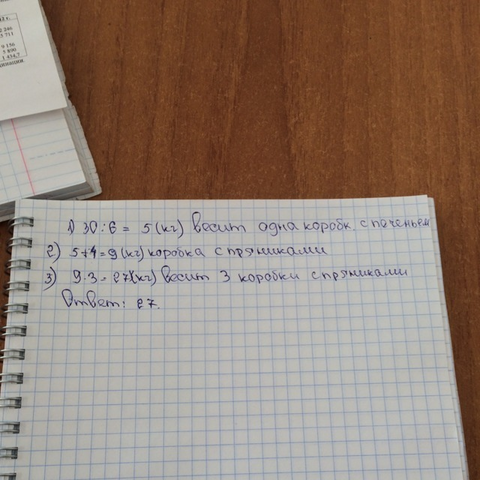 13 г.
9 156
7 890
1 454,7
1) 30:6 = 5 (кг) весит одна коробк с печеньем
2) 5+4=9 (кг) коробка с пряниками
3) 9·3=27 (кг) весит 3 коробки с пряниками
Ответ: 27.